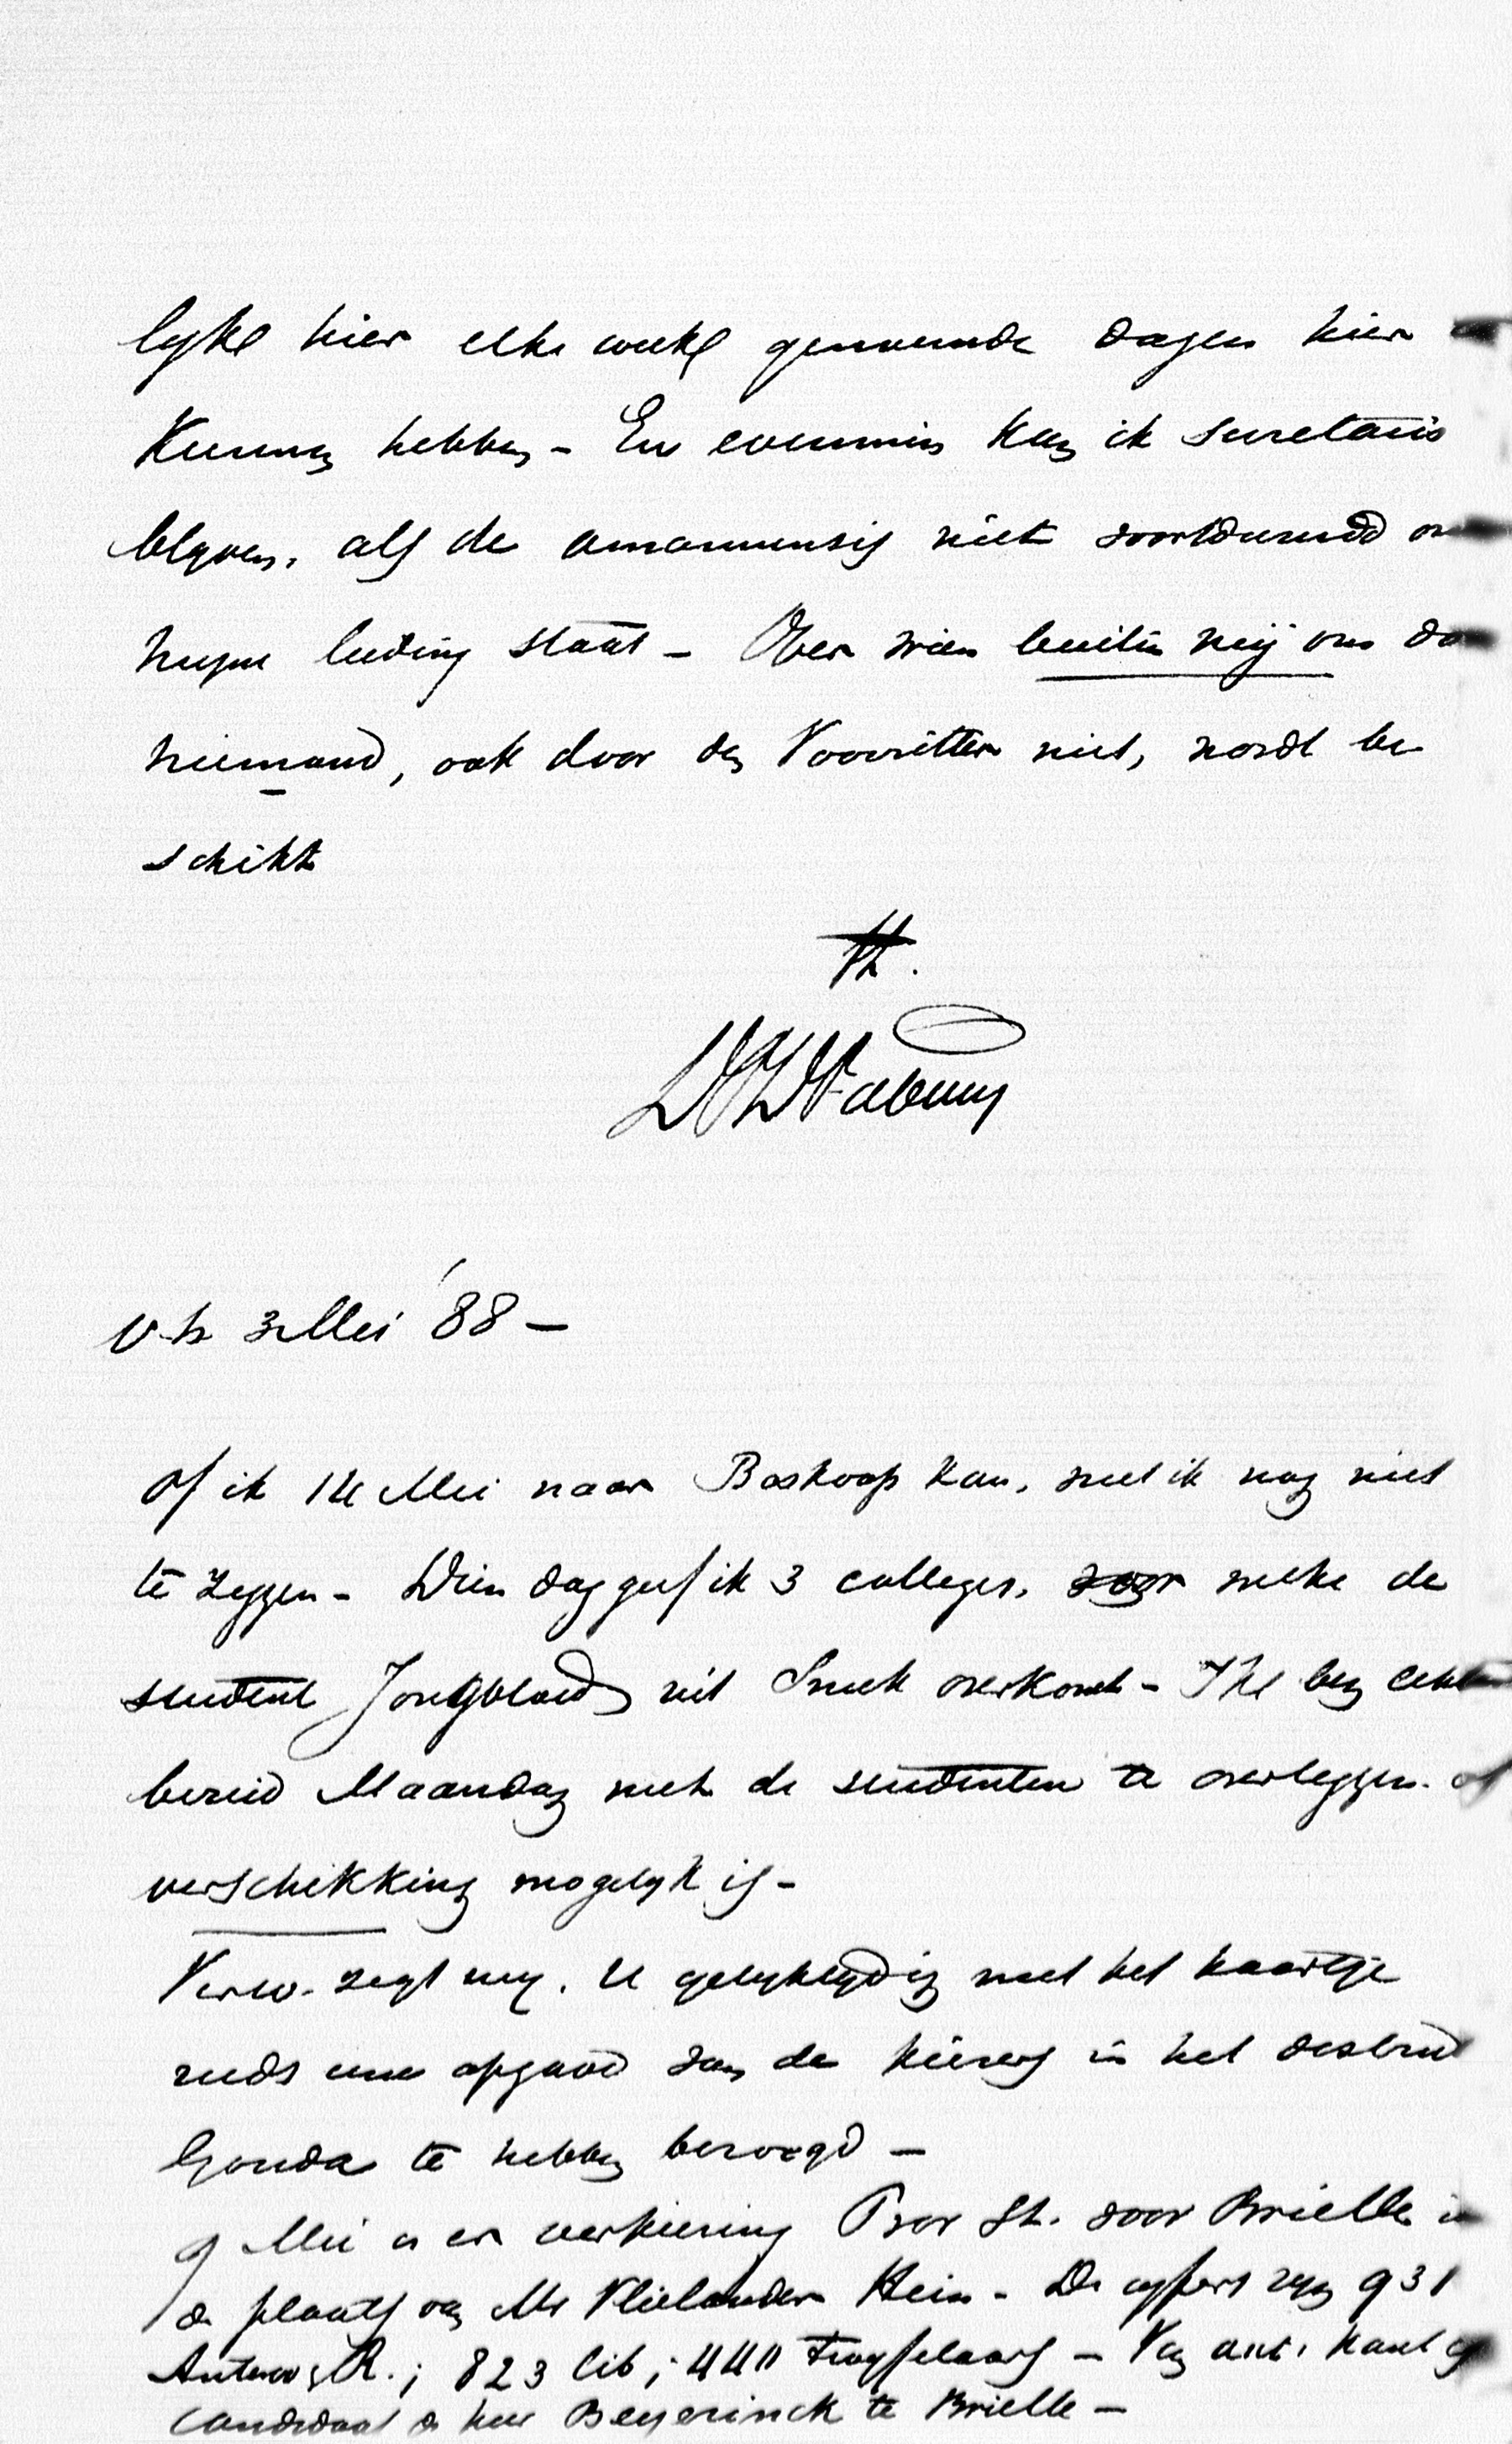 lyke hier elke week genoemde dagen hier
kunnen hebben - En evenmin kan ik secretaris
blyven, als de amanuensis niet voortdurend on
myne leiding staat - Over wien buiten mij om do
niemand, ook door den Voorzitter niet, wordt be
schikt
tt.
DPDFabius
3 Mei '88 -
Of ik 14 Mei naar Boskoop kan, weet ik nog niet
te zeggen - Dien dag geef ik 3 colleges, voor welke de
student Jongbloed uit Sneek overkomt - Ik ben echt
bereid Maandag met de studenten te overleggen of
verschikking mogelyk is -
Verw. zegt my, U gelyktydig met het kaartje
reeds eene opgave van de kiezers in het district
Gouda te hebben bezorgd -
9 Mei is er verkiezing Prov St. voor Brielle in
de plaats van Mr Vlielander Hein - De cyfers zyn 931
Antirev. & R. ; 823 lib ; 440 - Van ant. kant
candidaat de heer Beyerinck te Brielle -